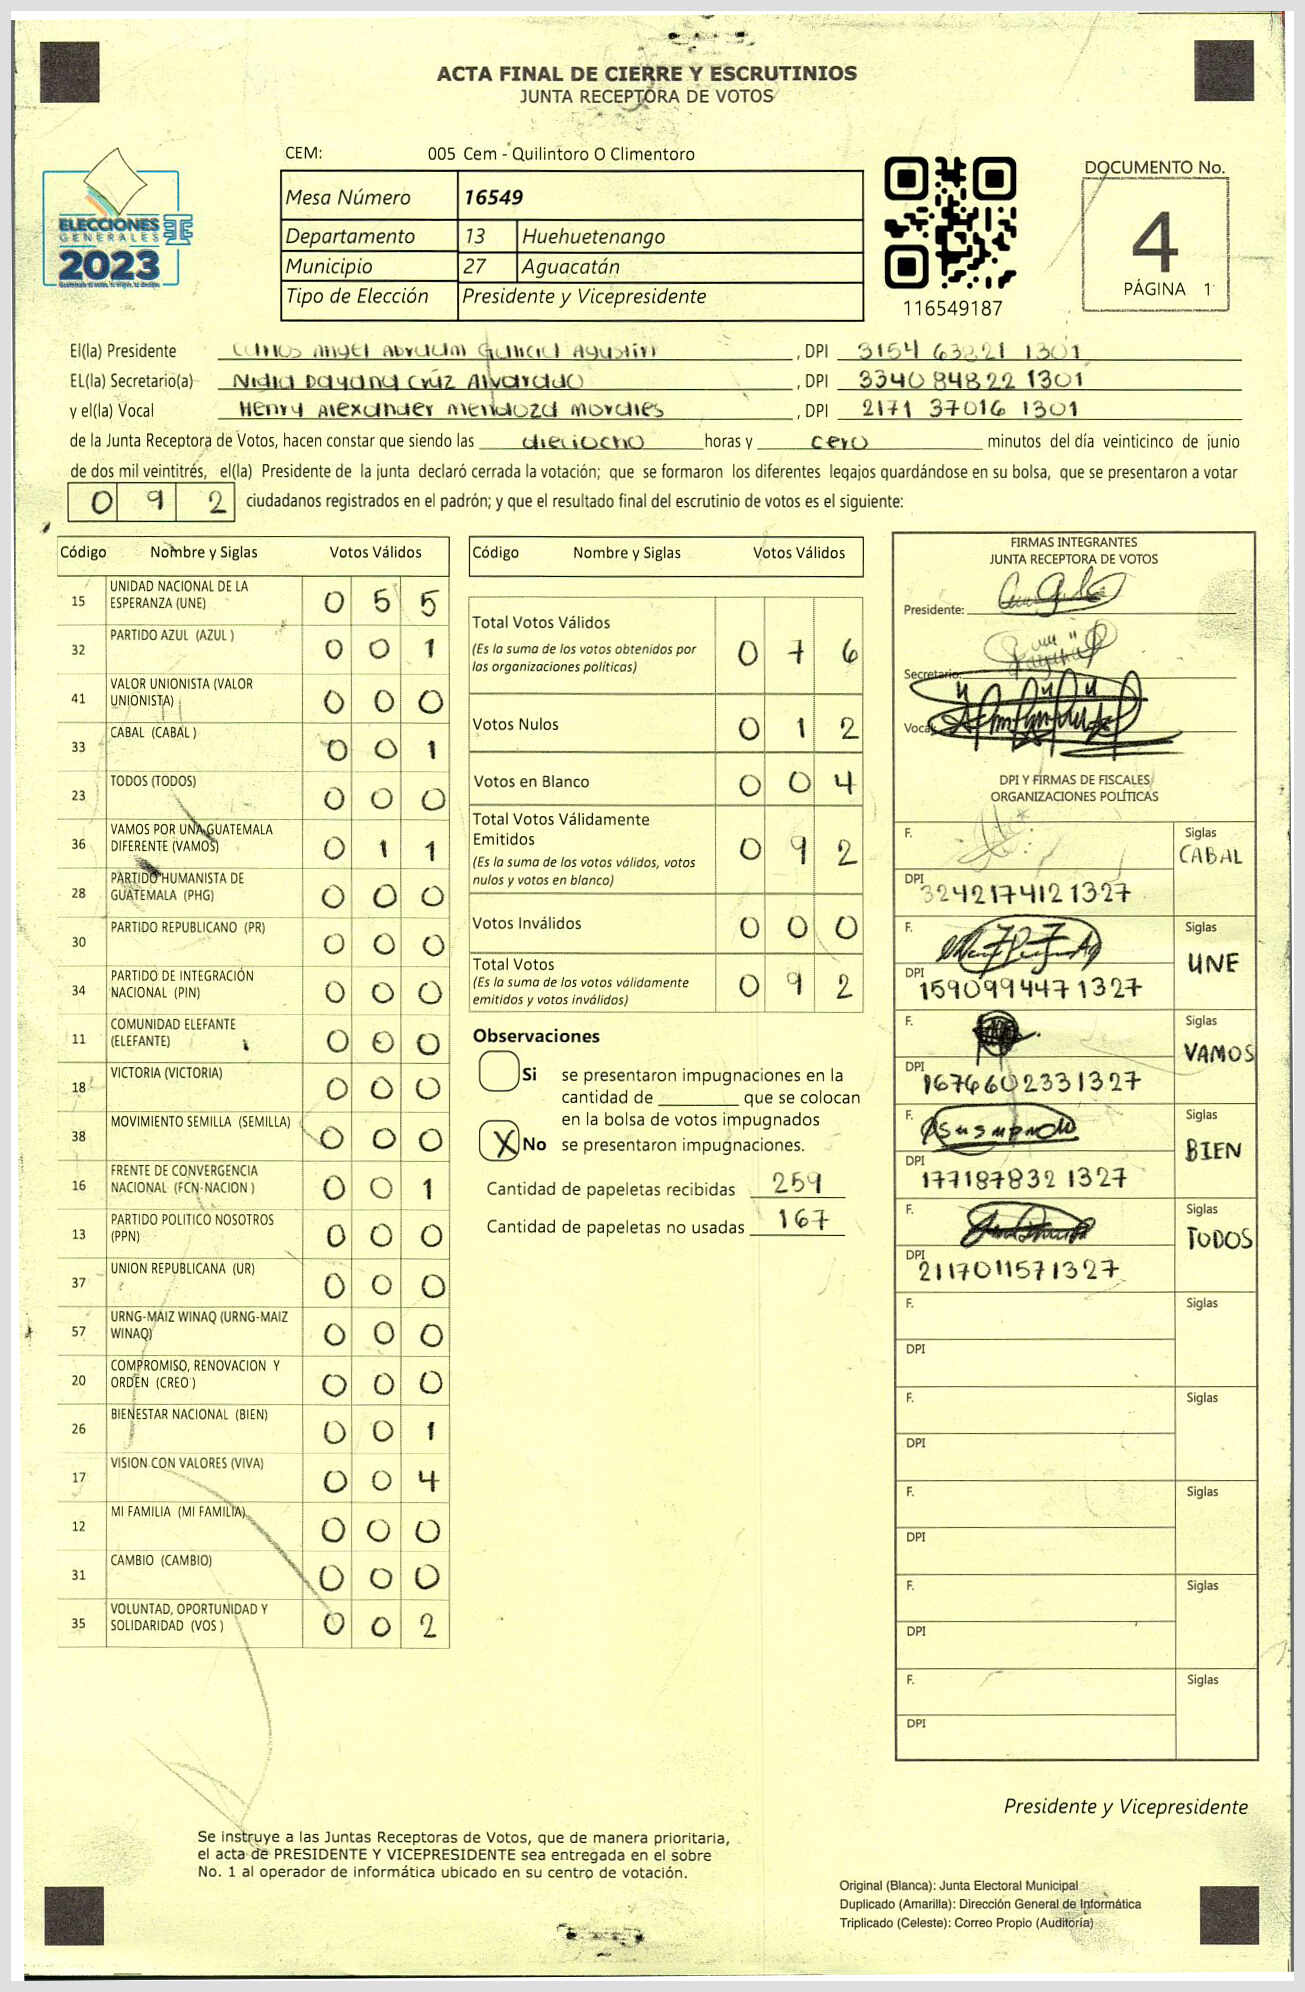 ACTA FINAL DE CIERRE Y ESCRUTINIOS
JUNTA RECEPTORA DE VOTOS
CEM: 005 Cem - Quilintoro O Climentoro
ELECCIONES
GENERALES
2023
Mesa Número 16549
Departamento 13 Huehuetenango
Municipio 27 Aguacatán
Tipo de Elección Presidente y Vicepresidente
116549187
DOCUMENTO No.
4
PÁGINA 1
El(la) Presidente Carlos Angel Abraham Agustín , DPI 3154 63821 1301
EL(la) Secretario(a) Nidia Dayana Crúz Alvarado , DPI 3340 84822 1301
y el(la) Vocal Henry Alexander Mendoza Morales , DPI 2171 37016 1301
de la Junta Receptora de Votos, hacen constar que siendo las dieciocho horas y cero minutos del día veinticinco de junio
de dos mil veintitrés, el(la) Presidente de la junta declaró cerrada la votación; que se formaron los diferentes legajos guardándose en su bolsa, que se presentaron a votar
0 9 2 ciudadanos registrados en el padrón; y que el resultado final del escrutinio de votos es el siguiente:
Código Nombre y Siglas Votos Válidos
15 UNIDAD NACIONAL DE LA ESPERANZA (UNE) 0 5 5
32 PARTIDO AZUL (AZUL ) 0 0 1
41 VALOR UNIONISTA (VALOR UNIONISTA) 0 0 0
33 CABAL (CABAL ) 0 0 1
23 TODOS (TODOS) 0 0 0
36 VAMOS POR UNA GUATEMALA DIFERENTE (VAMOS) 0 1 1
28 PARTIDO HUMANISTA DE GUATEMALA (PHG) 0 0 0
30 PARTIDO REPUBLICANO (PR) 0 0 0
34 PARTIDO DE INTEGRACIÓN NACIONAL (PIN) 0 0 0
11 COMUNIDAD ELEFANTE (ELEFANTE) 0 0 0
18 VICTORIA (VICTORIA) 0 0 0
38 MOVIMIENTO SEMILLA (SEMILLA) 0 0 0
16 FRENTE DE CONVERGENCIA NACIONAL (FCN-NACION ) 0 0 1
13 PARTIDO POLITICO NOSOTROS (PPN) 0 0 0
37 UNION REPUBLICANA (UR) 0 0 0
57 URNG-MAIZ WINAQ (URNG-MAIZ WINAQ) 0 0 0
20 COMPROMISO, RENOVACION Y ORDEN (CREO ) 0 0 0
26 BIENESTAR NACIONAL (BIEN) 0 0 1
17 VISION CON VALORES (VIVA) 0 0 4
12 MI FAMILIA (MI FAMILIA) 0 0 0
31 CAMBIO (CAMBIO) 0 0 0
35 VOLUNTAD, OPORTUNIDAD Y SOLIDARIDAD (VOS ) 0 0 2
Código Nombre y Siglas Votos Válidos
Total Votos Válidos 0 7 6
(Es la suma de los votos obtenidos por
las organizaciones políticas)
Votos Nulos 0 1 2
Votos en Blanco 0 0 4
Total Votos Válidamente
Emitidos 0 9 2
(Es la suma de los votos válidos, votos
nulos y votos en blanco)
Votos Inválidos 0 0 0
Total Votos 0 9 2
(Es la suma de los votos válidamente
emitidos y votos inválidos)
Observaciones
Si se presentaron impugnaciones en la
cantidad de ________ que se colocan
en la bolsa de votos impugnados
X No se presentaron impugnaciones.
Cantidad de papeletas recibidas 259
Cantidad de papeletas no usadas 167
FIRMAS INTEGRANTES
JUNTA RECEPTORA DE VOTOS
Presidente:
Secretario:
Vocal:
DPI Y FIRMAS DE FISCALES
ORGANIZACIONES POLÍTICAS
F. Siglas
CABAL
DPI 3242174121327
F. Siglas
UNE
DPI 1590994471327
F. Siglas
VAMOS
DPI 1676602331327
F. Siglas
BIEN
DPI 177187832 1327
F. Siglas
TODOS
DPI 2117011571327
F. Siglas
DPI
F. Siglas
DPI
F. Siglas
DPI
F. Siglas
DPI
F. Siglas
DPI
Presidente y Vicepresidente
Se instruye a las Juntas Receptoras de Votos, que de manera prioritaria,
el acta de PRESIDENTE Y VICEPRESIDENTE sea entregada en el sobre
No. 1 al operador de informática ubicado en su centro de votación.
Original (Blanca): Junta Electoral Municipal
Duplicado (Amarilla): Dirección General de Informática
Triplicado (Celeste): Correo Propio (Auditoría)